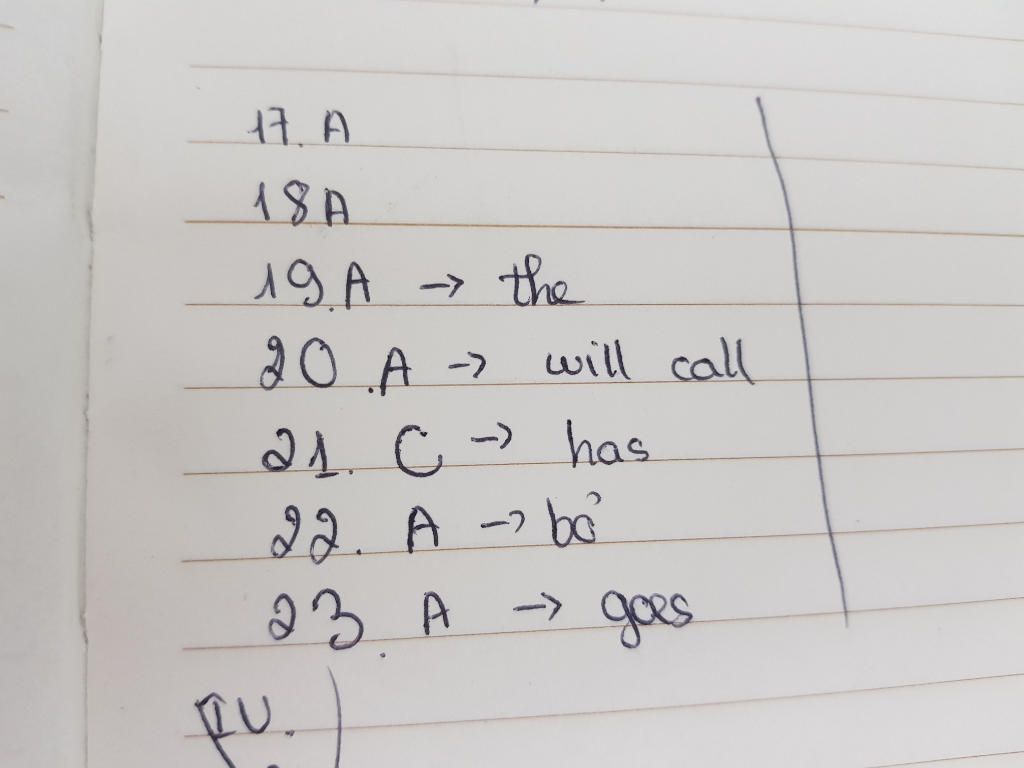 17. A
18 A
19. A → the
20. A → will call
21. C → has
22. A → bỏ
23. A → goes
IV.